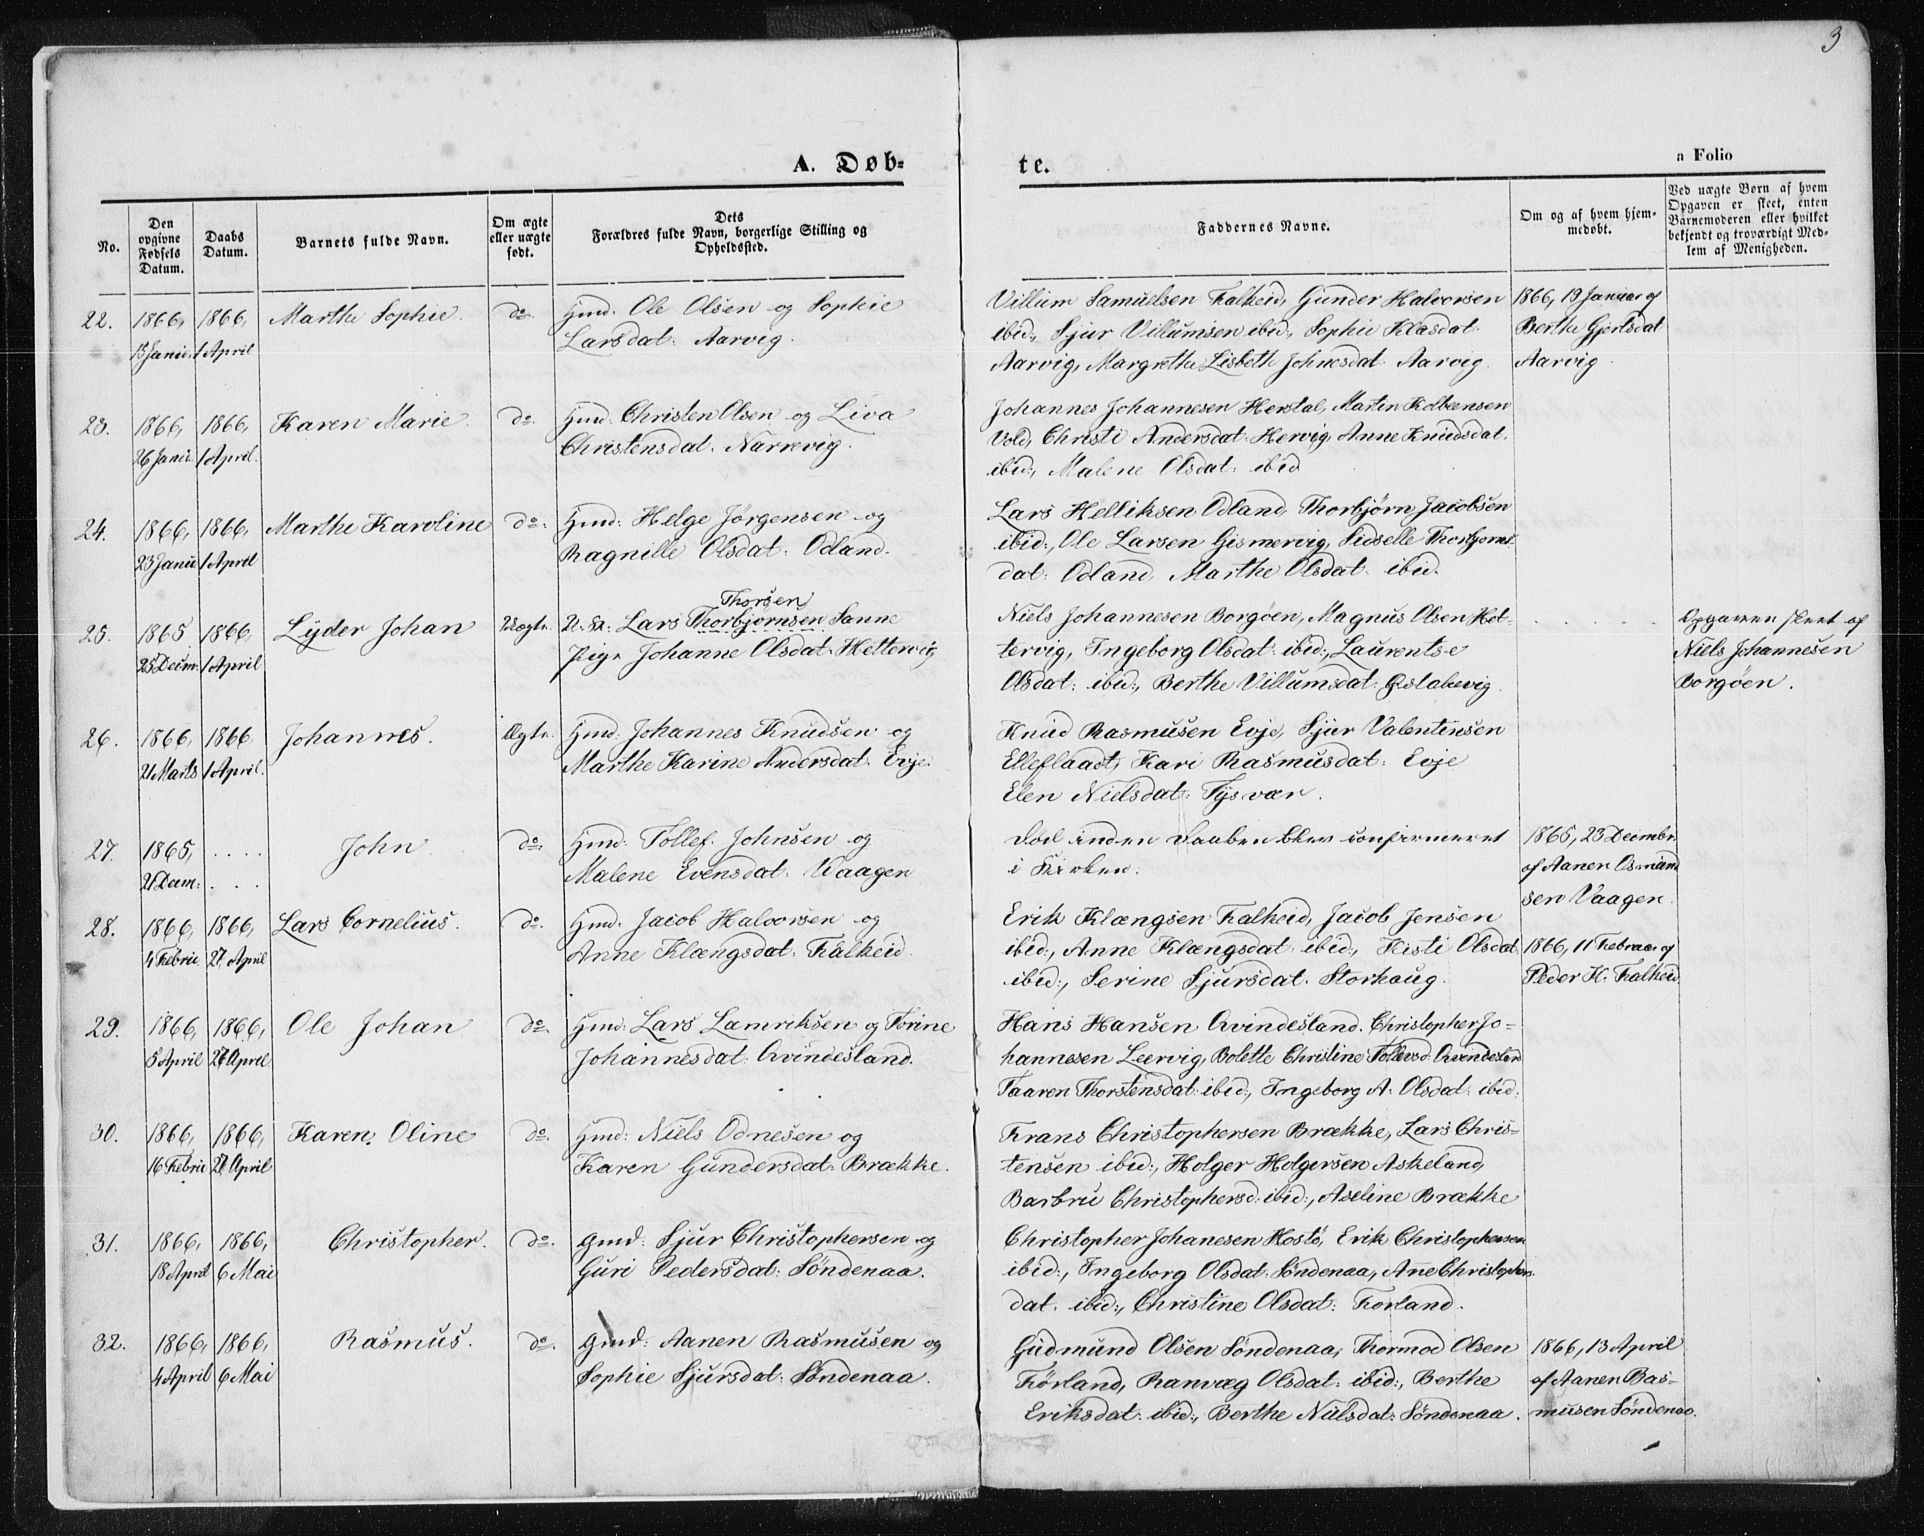 3
A. Døb-
te.
a Folio
No.
Den opgivne Fødsels Datum.
Daabs Datum.
Barnets fulde Navn.
Om ægte eller uægte født.
Dets Forældres fulde Navn, borgerlige Stilling og Opholdssted.
Faddernes Navne.
Om og af hvem hjemmedøbt.
Ved uægte Børn af hvem Opgaven er skeet, enten Barnemoderen eller hvilket bekjendt og troværdigt Medlem af Menigheden.
22. 1866, 1866, Marthe Sophie. do Hmd. Ole Olsen og Sophie
15 Janu. 1 April Larsdat: Aarvig.
Villum Samuelsen Falkeid, Gunder Halvorsen
ibid:, Sjur Villumsen ibid:, Sophie Klasdat.
Aarvig, Margrethe Lisbeth Johnesdat. Aarvig
1866, 19 Januar af
Berthe Gjertsdat
Aarvig.
23. 1866, 1866, Karen Marie. do. Hmd. Christen Olsen og Liva
26 Janu. 1 April. Christensdat. Narrevig.
Johannes Johannesen Herstal, Marten Kolbeensen
Vold, Christi Andersdat: Hervig, Anne Knudsdat.
ibid:, Malene Olsdat: ibid
24. 1866, 1866, Marthe Karoline do: Hmd: Helge Jørgensen og
23 Janu 1 April Ragnille Olsdat: Odland.
Lars Helliksen Odland, Thorbjørn Jacobsen
ibid:, Ole Larsen Gismervig, Sidselle Thorbjørns
dat: Odland, Marthe Olsdat. ibid.
Thorsen
25. 1865 1866, Lyder Johan Uægte. U. K: Lars Thorbjørnsen Sanne
25 Decm. 1 April Pige Johanne Olsdat. Hettervig
Niels Johannesen Borgøen, Magnus Olsen Het-
tervig, Ingeborg Olsdat: ibid:, Laurentse
Olsdat: ibid:, Berthe Villumsdat: Østabøvig.
Opgaven skeet af
Niels Johannesen
Borgøen.
26. 1866, 1866, Johannes. Ægte. Hmd. Johannes Knudsen og
21 Marts 1 April. Marthe Karine Andersdat: Evje.
Knud Rasmusen Evje, Sjur Valentinsen
Elleflaadt, Kari Rasmusdat: Evje
Elen Nielsdat: Tysvær.
27. 1865, .... John do: Hmd: Tollef. Johnsen og
21 Decm: ... Malene Evensdat. Vaagen
Død inden Daaben blev confirmeret
i Kirken:
1865, 23 Decmbr.
af Aanen Osmund
sen Vaagen.
28. 1866, 1866, Lars Cornelius. do. Hmd. Jacob Halvorsen og
4 Febru 27 April Anne Klængsdat: Falkeid.
Erik Klængsen Falkeid, Jacob Jensen
ibid:, Anne Klængsdat: ibid:, Kisti Olsdat
ibid:, Serine Sjursdat. Storhaug.
1866, 11 Februar af
Peder H. Falkeid
29. 1866, 1866, Ole Johan do. Hmd: Lars Lamriksen og Torine
5 April 27 April Johannesdat: Qvindesland.
Hans Hansen Qvindesland, Christopher Jo-
hannesen Leervig, Bolette Christine Tollevsd. Qvindesland
Taaren Thorstensdat: ibid:, Ingeborg A. Olsdat: ibid:
30. 1866, 1866, Karen Oline do: Hmd: Niels Odnesen og
16 Febru 27 April Karen Gundersdat: Brække.
Frans Christophersen Brække, Lars Chris-
tensen ibid:, Holger Holgersen Askeland,
Barbru Christophersd: ibid:, Aseline Brække
31. 1866, 1866, Christopher. do. Gmd: Sjur Christophersen og
18 April 6 Mai Guri Pedersdat: Søndenaa.
Christopher Johanesen Hostø, Erik Christophersen
ibid:, Ingeborg Olsdat: Søndenaa, Ane Christophers.
dat. ibid:, Christine Olsdat: Forland.
32. 1866, 1866, Rasmus. do. Gmd: Aanen Rasmusen og
4 April 6 Mai Sophie Sjursdat: Søndenaa.
Gudmund Olsen Søndenaa, Thormod Olsen
Førland, Ranvæg Olsdat: ibid:, Berthe
Eriksdat: ibid:, Berthe Nielsdat: Søndenaa.
1866, 13 April
af Aanen Ras-
musen Søndenaa.